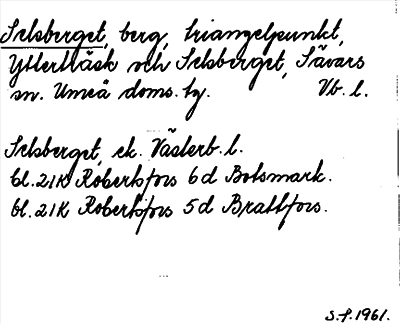 Selsberget, berg, triangelpunkt,
Ytterträsk och Selsberget, Sävars
sn. Umeå doms. tg. Vb. l.
Selsberget, ek. Västerb. l.
bl. 21K Robertsfors 6d Botsmark.
bl. 21K Robertsfors 5d Brattfors.
S.f. 1961.